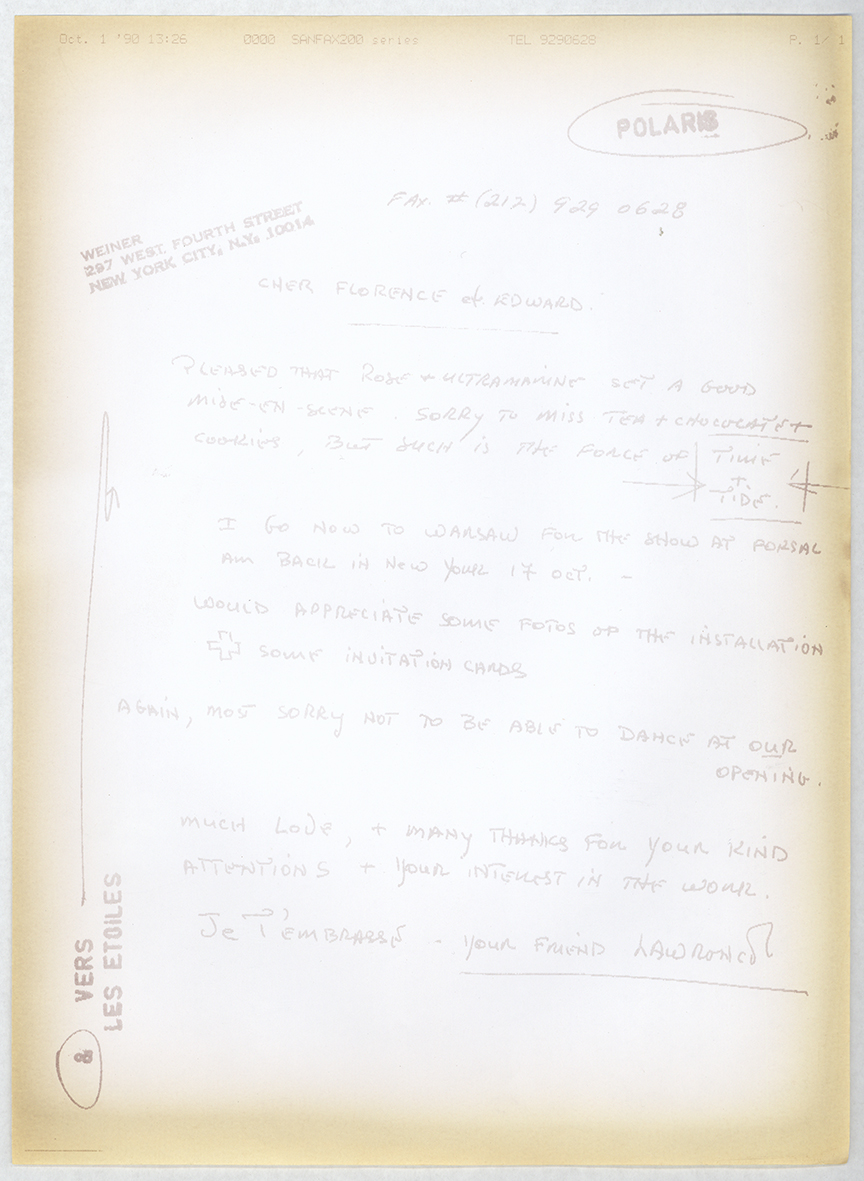 Oct. 1 '90 13:26 0000 SANFAX200 series TEL 9290628 P. 1/ 1
POLARIS
FAX. # (212) 929 0628
WEINER
297 WEST FOURTH STREET
NEW YORK CITY, N.Y. 10014
CHER FLORENCE & EDWARD.
PLEASED THAT ROSE + ULTRAMARINE SET A GOOD
MISE-EN-SCENE. SORRY TO MISS TEA + CHOCOLATE +
COOKIES, BUT SUCH IS THE FORCE OF TIME
+
TIDE.
I GO NOW TO WARSAW FOR THE SHOW AT FORSAL
AM BACK IN NEW YORK 17 OCT. -
WOULD APPRECIATE SOME FOTOS OF THE INSTALLATION
+ SOME INVITATION CARDS
AGAIN, MOST SORRY NOT TO BE ABLE TO DANCE AT OUR
OPENING.
MUCH LOVE, + MANY THANKS FOR YOUR KIND
ATTENTIONS + YOUR INTEREST IN THE WORK.
Je T'EMBRASSE - YOUR FRIEND LAWRENCE
& VERS
LES ETOILES